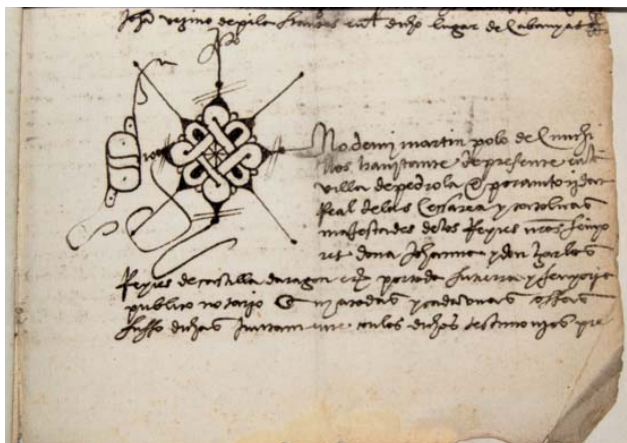 Joħn vezino de pila en el dicho lugar de Cabanyas
Sig no de mi martin polo de Cunchi
llos habitante de presente en la
villa de pedrola E por autoridat
Real de las Cessarea y catolicas
magestades de los Reyes nros senyo
res dona Johanna y don Carlos
Reyes de castilla daragon etc por toda su tierra y senyoria
publico notario E in a todas y cada unas cosas
suso dichas juntamente con los dichos testimonios pre